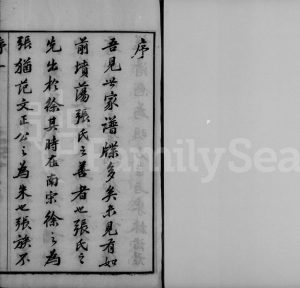 序
吾見世家譜牒多矣未見有如
前墳蕩張氏之善者也張氏之
先出於徐其時在南宋徐之為
張猶范文正公之為朱也張族不
序一
FamilySea